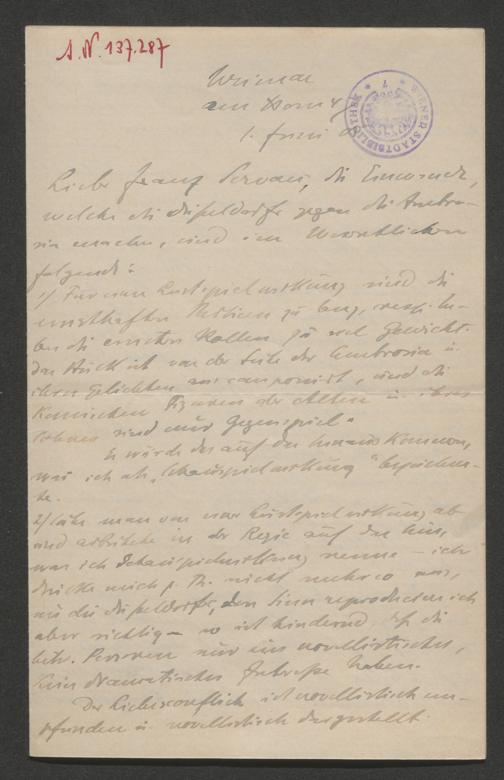 A.N. 137.287
Weimar
am Horn
1. Juni
WIENER STADTBIBLIOTHEK
Liebe Franz Servaes, die Einwende,
welche die Düsseldorfer gegen die Ambro-
sia machen, sind im Wesentlichen
folgende:
1) Für eine Lustspielwirkung sind die
ernsthaften zu lang, resp. ha-
ben die ernsten Rollen zu viel Gewicht.
Das Stück ist von der Seite der Ambrosia u.
ihres Geliebten aus componirt, und die
Komischen Figuren der alten u. ihres
Sohnes sind nur Gegenspiel.
Es würde das auf das hinaus Kommen,
was ich als "Schauspielwirkung" bezeichne-
te.
2) Sähe man von einer Lustspielwirkung ab
und arbeitete in der Regie auf das hin,
was ich Schauspielwirkung nenne – ich
drücke mich z. Th. nicht anders aus,
als die Düsseldorfer, den Sinn reproduciere ich
aber richtig – so ist hindernd, dß die
betr. Personen nur ein novellistisches,
Kein dramatisches Interesse haben.
Der Liebesconflict ist novellistisch em-
pfunden u. novellistisch dargestellt.